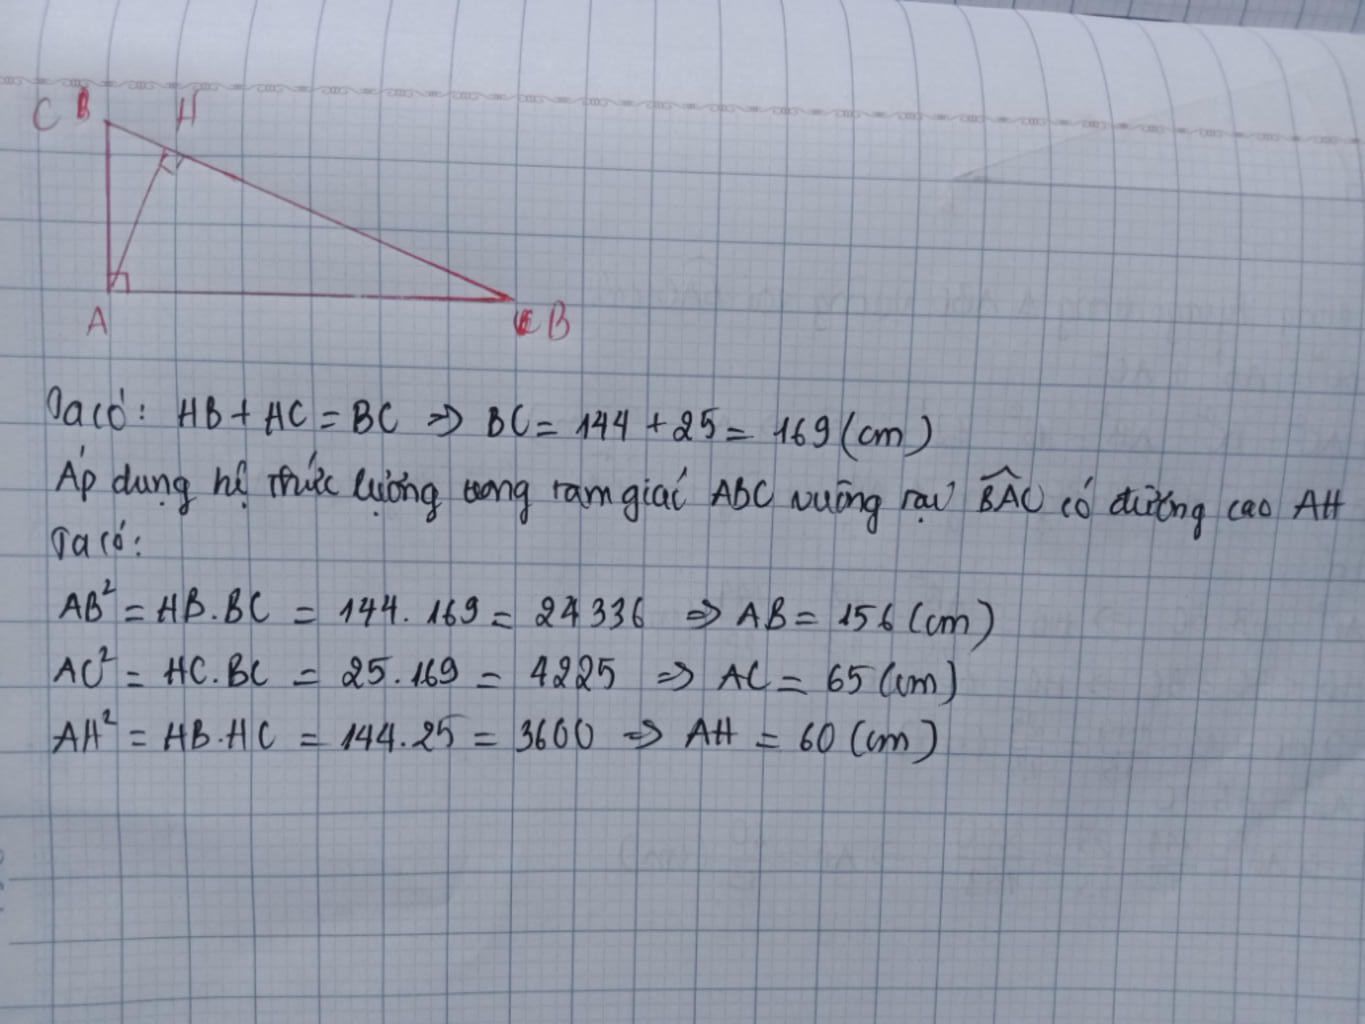 C B H
A C B
Ta có: HB + HC = BC => BC = 144 + 25 = 169 (cm)
Áp dụng hệ thức lượng trong tam giác ABC vuông tại BAC có đường cao AH
Ta có:
AB² = HB.BC = 144.169 = 24336 => AB = 156 (cm)
AC² = HC.BC = 25.169 = 4225 => AC = 65 (cm)
AH² = HB.HC = 144.25 = 3600 => AH = 60 (cm)